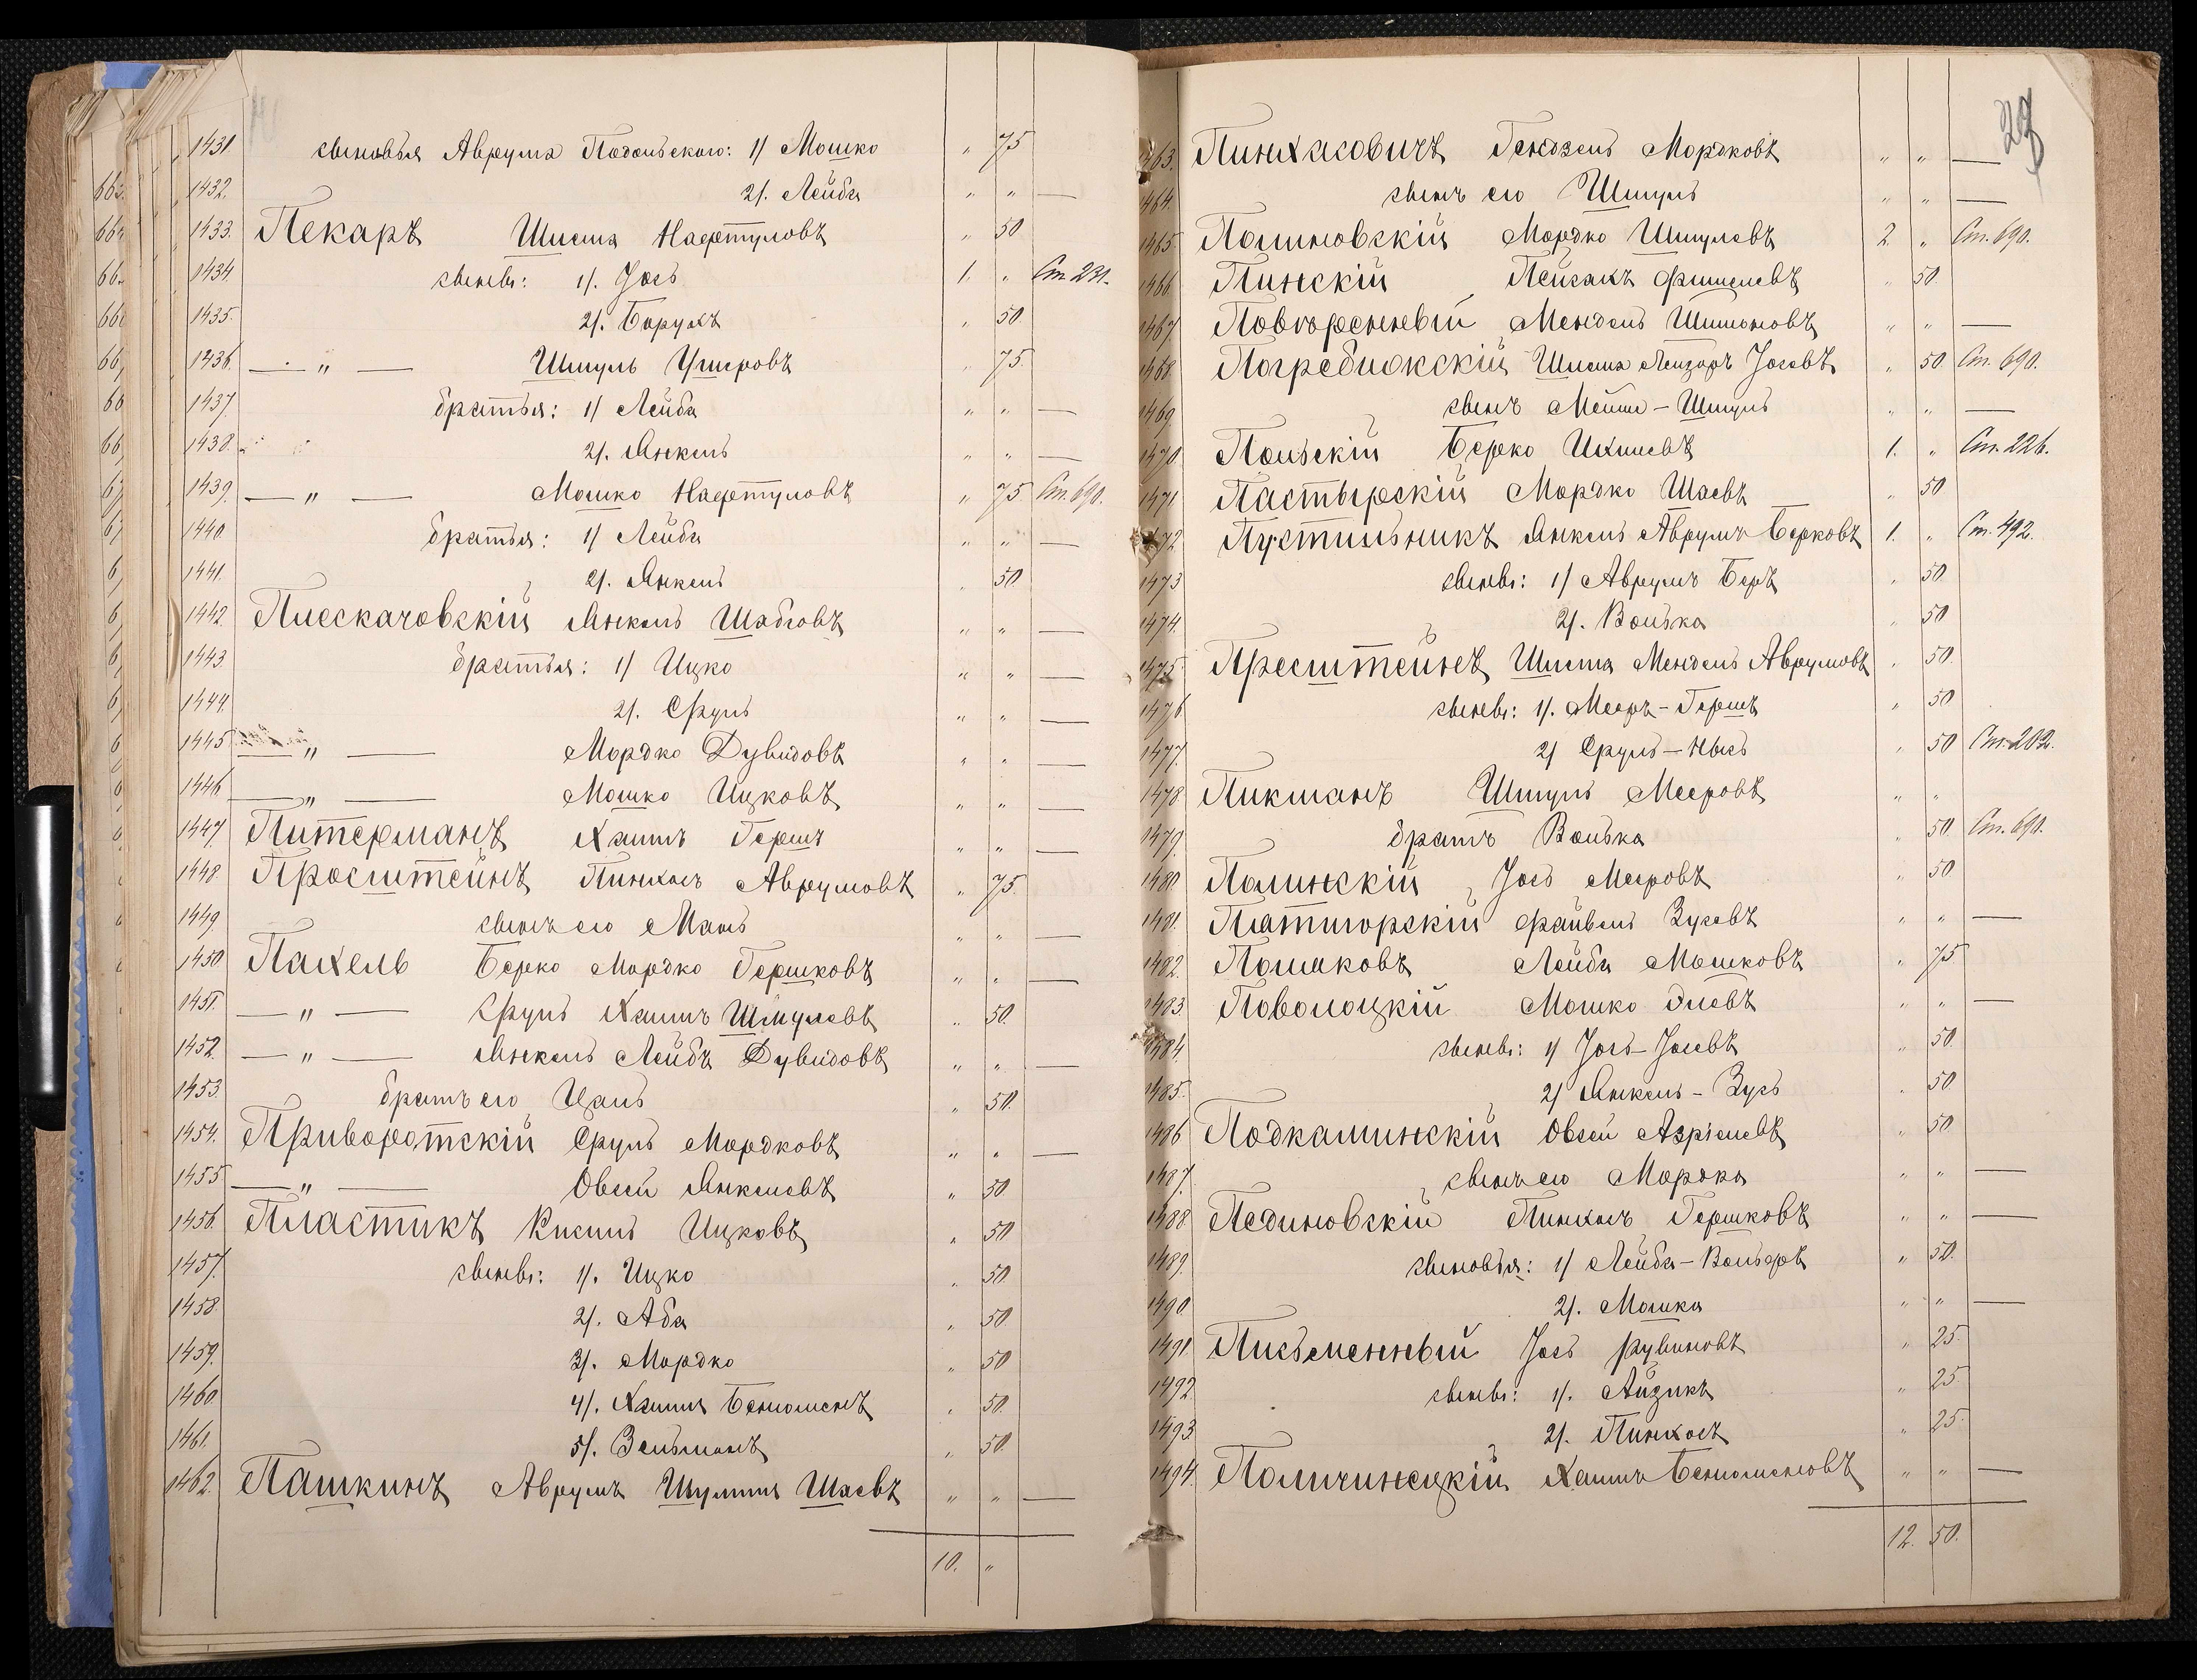 1431. сыновья Аврума Подольскаго: 1/ Мошко " 75
1432. 2/. Лейба " " —
1433. Пекаръ Шлема Нафтуловъ " 50
1434. сыновъ: 1/. Іосъ 1. " Ст. 231.
1435. 2/. Борухъ " 50
1436. — " — Шмуль Ушеровъ " 75.
1437. братья: 1/ Лейба " " —
1438. 2/. Янкель " " —
1439. — " — Мошко Нафтуловъ " 75 Ст. 690.
1440. братья: 1/ Лейба " " —
1441. 2/. Янкель " 50.
1442. Плескачовскій Янкель Шабсовъ " " —
1443. братья: 1/ Ицко " " —
1444. 2/. Сруль " " —
1445. — " — Мордко Дувидовъ " " —
1446. — " — Мошко Ицковъ " " —
1447. Питерманъ Хаимъ Гершъ " " —
1448. Пресштейнъ Пинхасъ Аврумовъ " 75.
1449. сынъ его Мань " " —
1450. Пахель Берко Мордко Гершковъ " " —
1451. — " — Сруль Хаимъ Шмулевъ " 50.
1452. — " — Янкель Лейбъ Дувидовъ " " —
1453. братъ его Цаль " 50.
1454. Приворотскій Сруль Мордковъ " " —
1455 — " — Овсей Янкелевъ " 50
1456. Пластикъ Кисиль Ицковъ " 50
1457. сыновъ: 1/. Ицко " 50
1458. 2/. Аба " 50
1459. 3/. Мордко " 50
1460. 4/. Хаимъ Беніоменъ " 50.
1461. 5/. Зельманъ " 50.
1462. Пашкинъ Аврумъ Шулимъ Шаевъ " " —
10. "
27
463. Пинхасовичъ Гендзель Мордковъ " " —
464. сынъ его Шмуль " " —
1465 Полиновскій Мордко Шмулевъ 2. " Ст. 690.
1466 Пинскій Пейсахъ Фишелевъ " 50.
1467. Повторенный Мендель Шимоновъ " " —
1468. Погребижскій Шлема Лейзоръ Іосевъ " 50 Ст. 690.
1469. сынъ Мейше-Шмуль " " —
1470. Польскій Берко Ихилевъ 1. " Ст. 226.
1471. Пастырскій Мордко Шаевъ " 50
1472. Пустильникъ Янкель Аврумъ Берковъ 1. " Ст. 492.
1473 сыновъ: 1/ Аврумъ Беръ " 50.
1474. 2/. Волька " 50
1475. Пресштейнъ Шлема Мендель Аврумовъ " 50.
1476 сыновъ: 1/. Мееръ-Гершъ " 50
1477. 2/ Сруль-Нысъ " 50 Ст. 202.
1478 Пикманъ Шмуль Мееровъ " "
1479. братъ Волька " 50. Ст. 690.
1480 Полинскій Іосъ Мееровъ " 50
1481. Платигорскій Файвель Зусевъ " " —
1482. Полшаковъ Лейба Мошковъ " 75
1483. Поволоцкій Мошко Элевъ " " —
1484 сыновъ: 1/ Іосъ-Іосевъ " 50.
1485. 2/ Янкель-Зусь " 50
1486 Подкаминскій Овсей Азріелевъ " 50
1487. сынъ его Мордко " " —
1488 Пединовскій Пинхасъ Гершковъ " " —
1489. сыновья: 1/ Лейба-Вольфъ " 50.
1490 2/. Мошка " " —
1491. Письменный Іось Рувиновъ " 25.
1492 сыновъ: 1/. Айзикъ " 25.
1493 2/. Пинхосъ " 25.
1494. Поличинецкій Хаимъ Беніоменовъ " " —
12. 50.